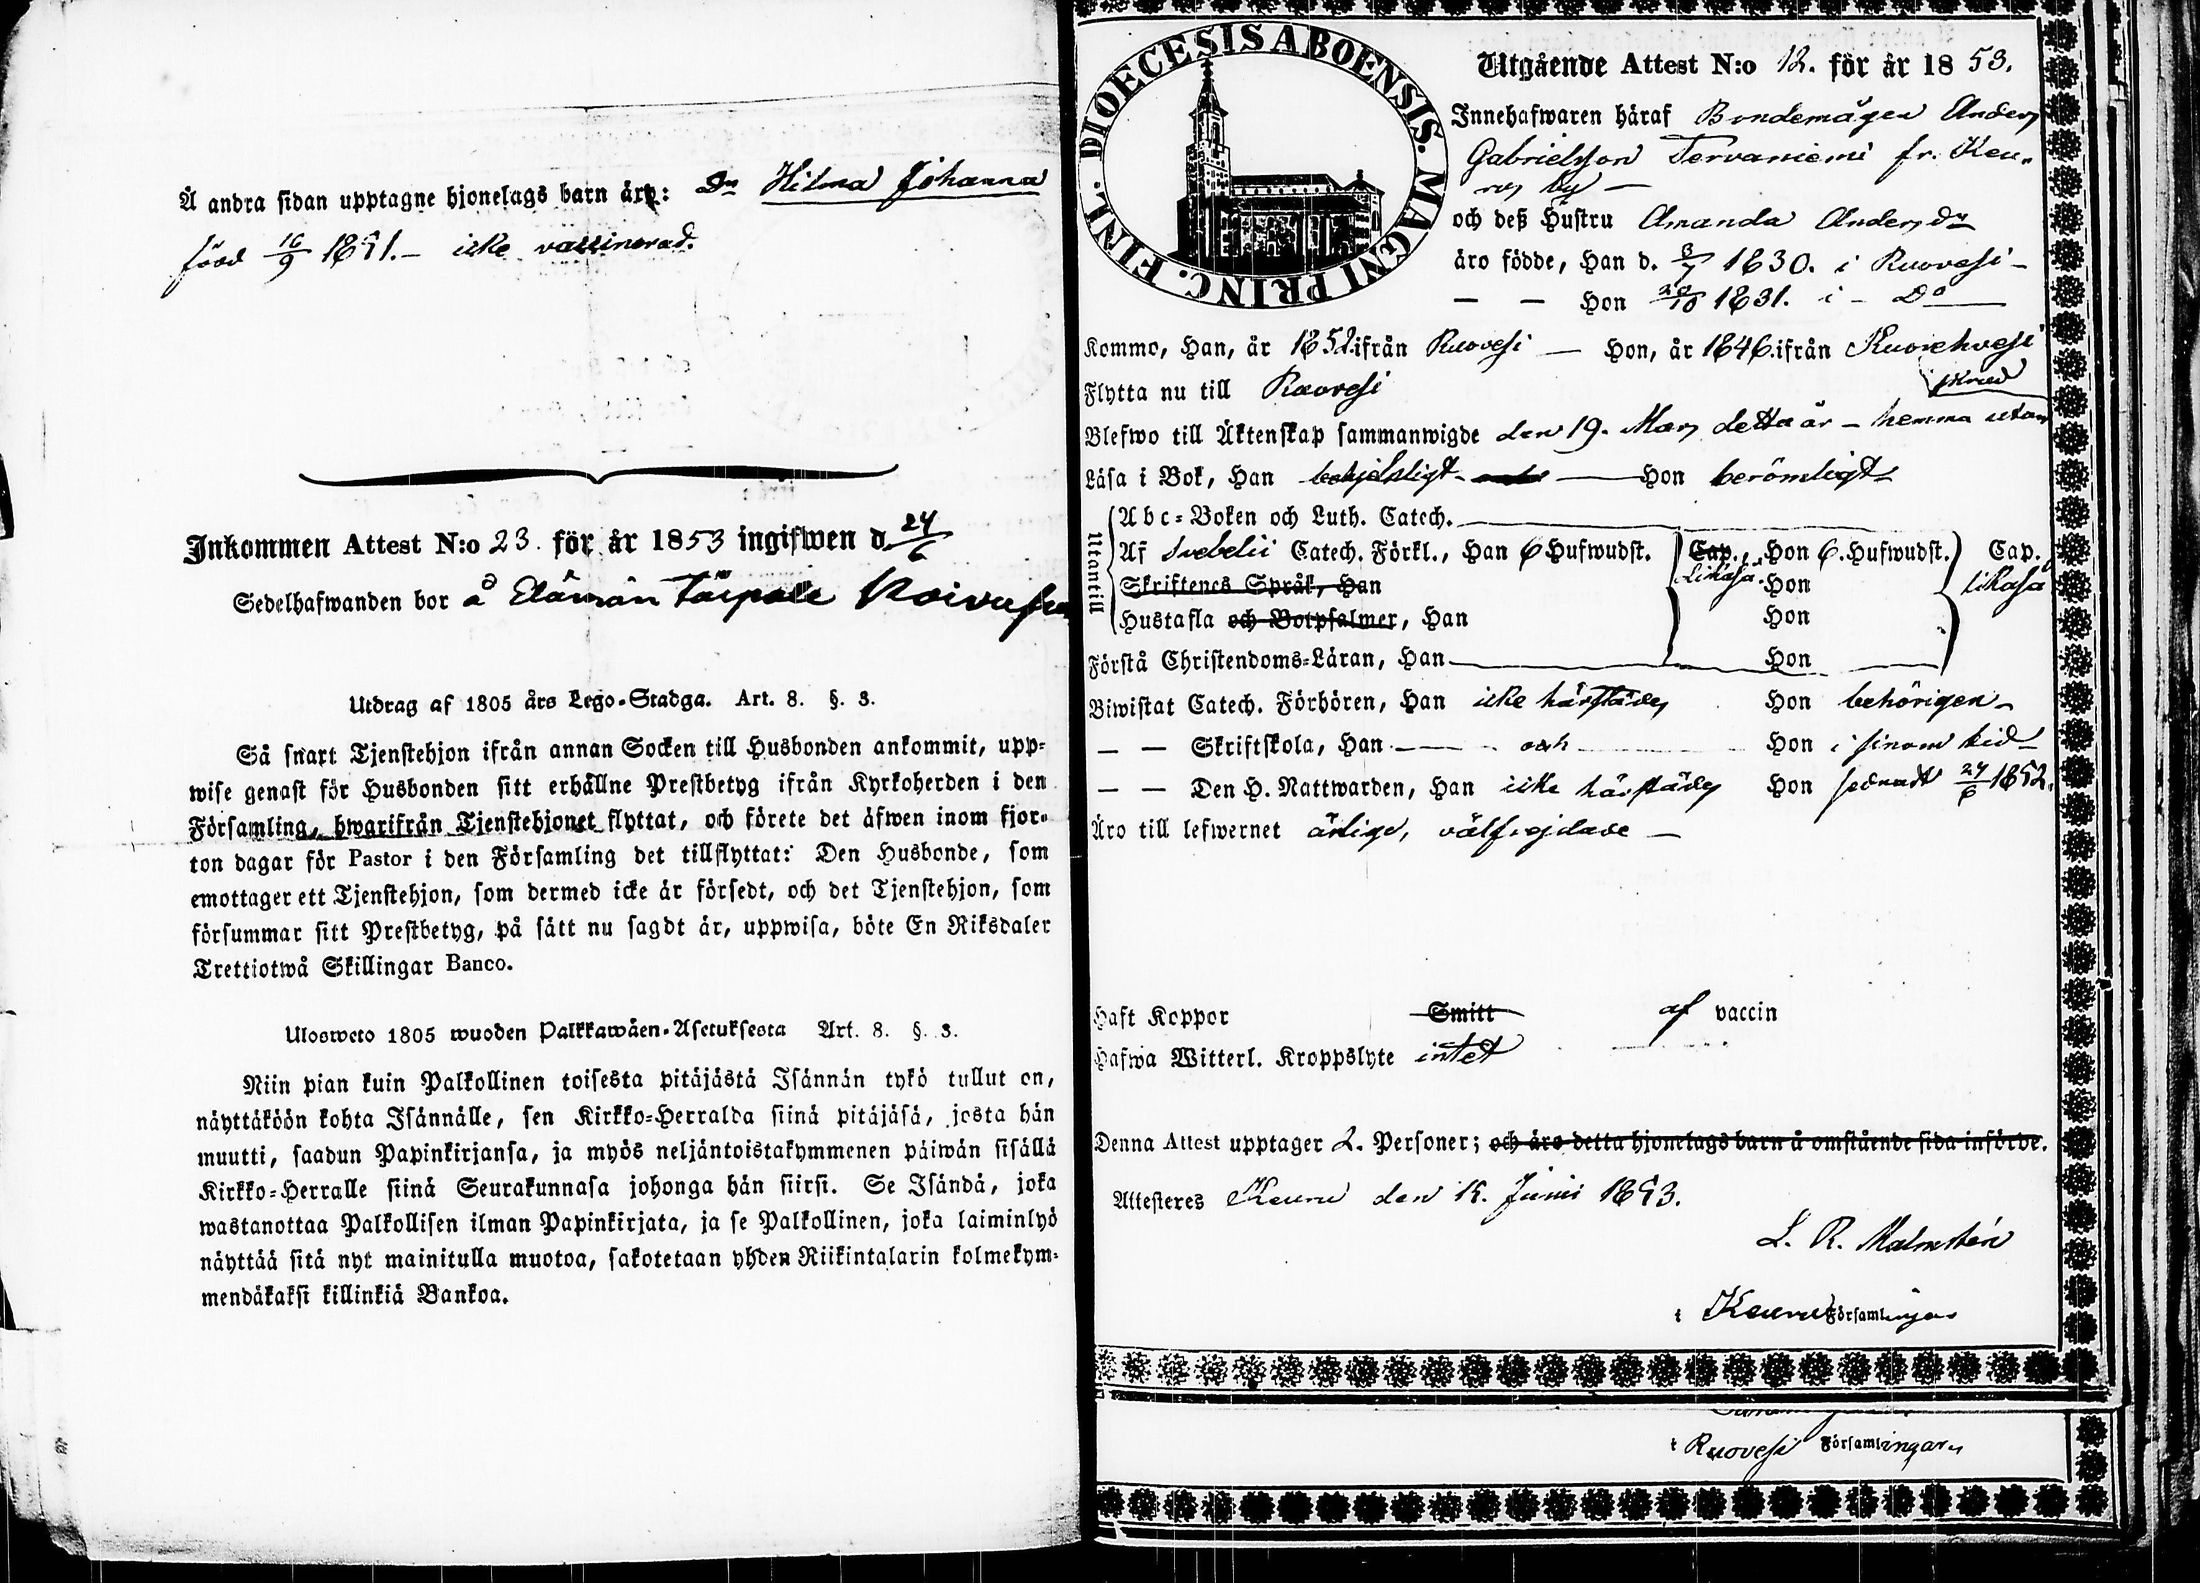 Å andra sidan upptagne hjonelags barn äro: Dr Hilma Johanna
född 16/9 1851. – icke vaccinerad.
Inkommen Attest N:o 23. för år 1853 ingifwen d. 24/6
Sedelhafwanden bor å
Utdrag af 1805 års Lego-Stadga. Art. 8. §. 3.
Så snart Tjenstehjon ifrån annan Socken till Husbonden ankommit, upp-
wise genast för Husbonden sitt erhållne Prestbetyg ifrån Kyrkoherden i den
Församling, hwarifrån Tjenstehjonet flyttat, och förete det äfwen inom fjor-
ton dagar för Pastor i den Församling det tillflyttat: Den Husbonde, som
emottager ett Tjenstehjon, som dermed icke är försedt, och det Tjenstehjon, som
försummar sitt Prestbetyg, på sätt nu sagdt är, uppwisa, böte En Riksdaler
Trettiotwå Skillingar Banco.
Ulosweto 1805 wuoden Palkkawäen-Asetuksesta Art. 8. §. 3.
Niin pian kuin Palkollinen toisesta pitäjästä Isännän tykö tullut on,
näyttäköön kohta Isännälle, sen Kirkko-Herralda siinä pitäjäsä, josta hän
muutti, saadun Papinkirjansa, ja myös neljäntoistakymmenen päiwän sisällä
Kirkko-Herralle siinä Seurakunnasa johonga hän siirsi. Se Isändä, joka
wastanottaa Palkollisen ilman Papinkirjata, ja se Palkollinen, joka laiminlyö
näyttää sitä nyt mainitulla muotoa, sakotetaan yhden Riikintalarin kolmekym-
mendäkaksi killinkiä Bankoa.
DIOECESIS ABOENSIS. MAGNI PRINC. FINL.
Utgående Attest N:o 12. för år 1853.
Innehafwaren häraf Bondemågen Anders
Gabrielsson Tervaniemi fr. Keu-
ru by –
och deß Hustru Amanda Andersdr
äro födde, Han d. 3/7 1830. i Ruovesi –
– – Hon 20/10 1831. i – Do
Kommo, Han, år 1852. ifrån Ruovesi – Hon, år 1846. ifrån Kuorehvesi
Flytta nu till Ruovesi
Blefwo till Äktenskap sammanwigde den 19. Mars detta år – hemma utan
Läsa i Bok, Han behjelpligt – Hon berömligt
Utantill
Abc-Boken och Luth. Catech.
Af Svebelii Catech. Förkl., Han 6 Hufwudst. Cap., Hon 6. Hufwudst. Cap.
Skriftenes Språk, Han likaså Hon likaså
Hustafla och Botpsalmer, Han Hon
Förstå Christendoms-Läran, Han Hon
Biwistat Catech. Förhören, Han icke härstädes Hon behörigen –
– – Skriftskola, Han och Hon i sinom tid –
– – Den H. Nattwarden, Han icke härstädes Hon sednast 24/6 1852.
Äro till lefwernet ärlige, välfrejdade –
Haft Koppor Smitt af vaccin
Hafwa Witterl. Kroppslyte intet
Denna Attest upptager 2. Personer; och äro detta hjonelags barn å omstående sida införde.
Attesteres Keuru den 15. Junii 1853.
L. R. Malmstén
i Keuru Församlingar
i Ruovesi Församlingars